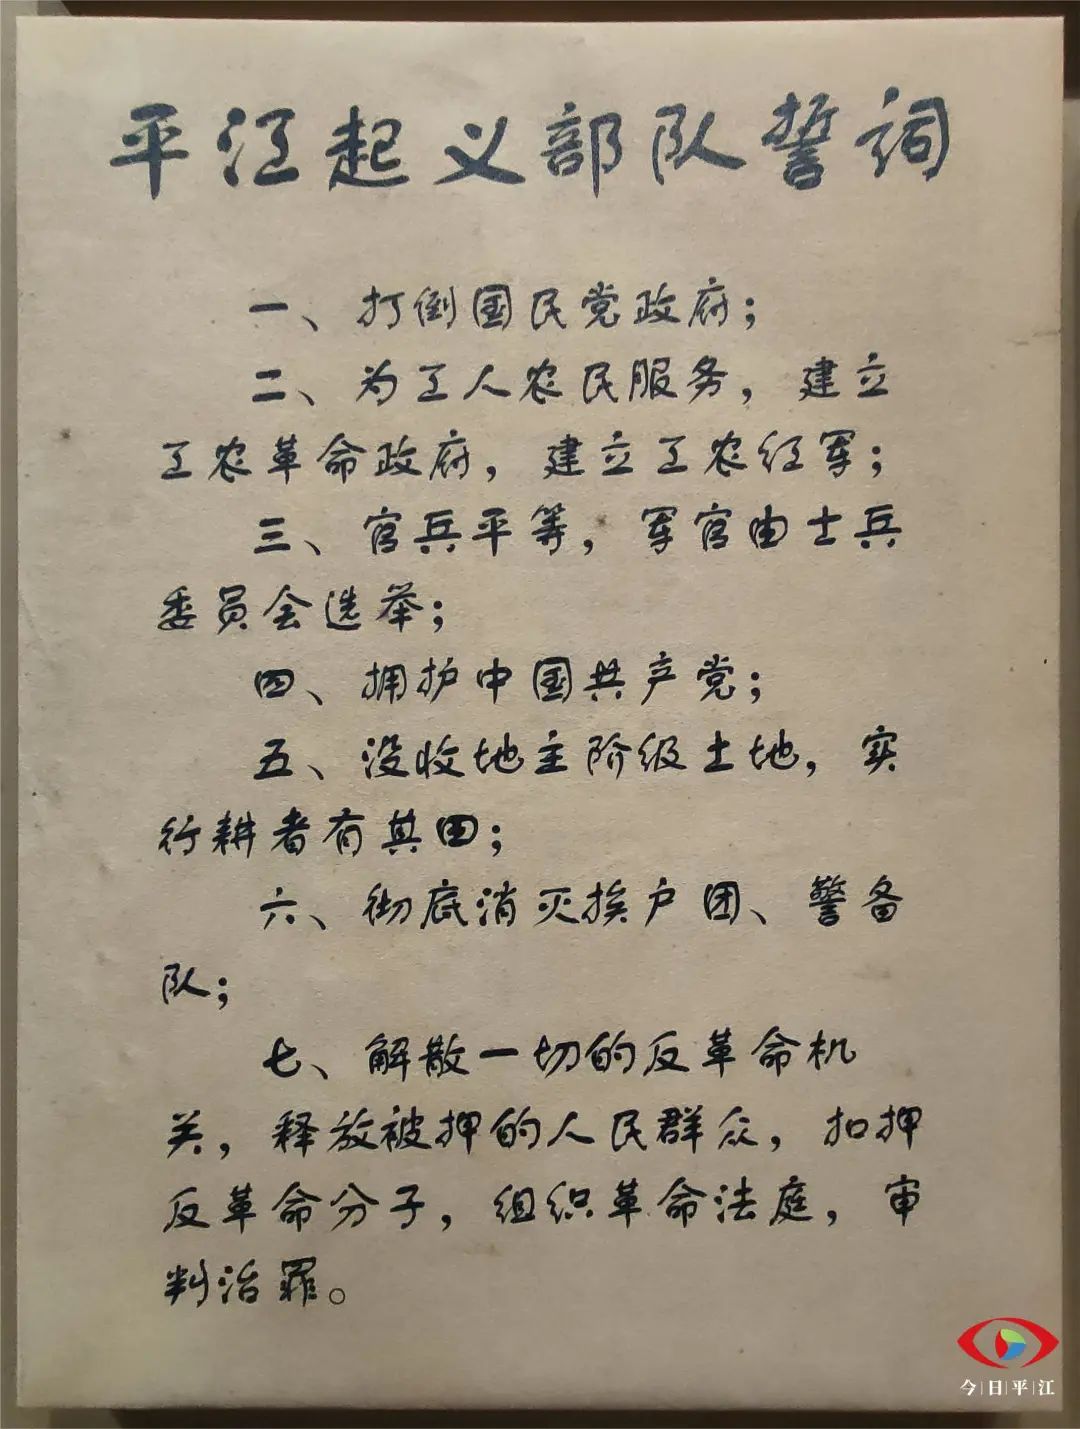 平江起义部队誓词
一、打倒国民党政府；
二、为工人农民服务，建立
工农革命政府，建立工农红军；
三、官兵平等，军官由士兵
委员会选举；
四、拥护中国共产党；
五、没收地主阶级土地，实
行耕者有其田；
六、彻底消灭挨户团、警备
队；
七、解散一切的反革命机
关，释放被押的人民群众，扣押
反革命分子，组织革命法庭，审
判治罪。
今日平江